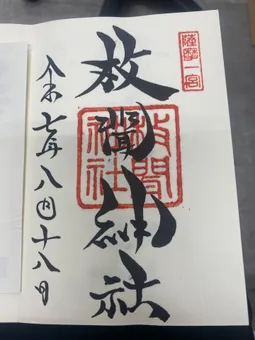 薩摩一宮
枚聞神社
枚聞
神社
令和七年八月十八日